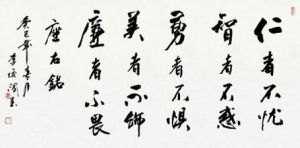 仁者不忧
智者不惑
勇者不惧
美者不
廉者不畏
座右銘
癸巳年春月
李